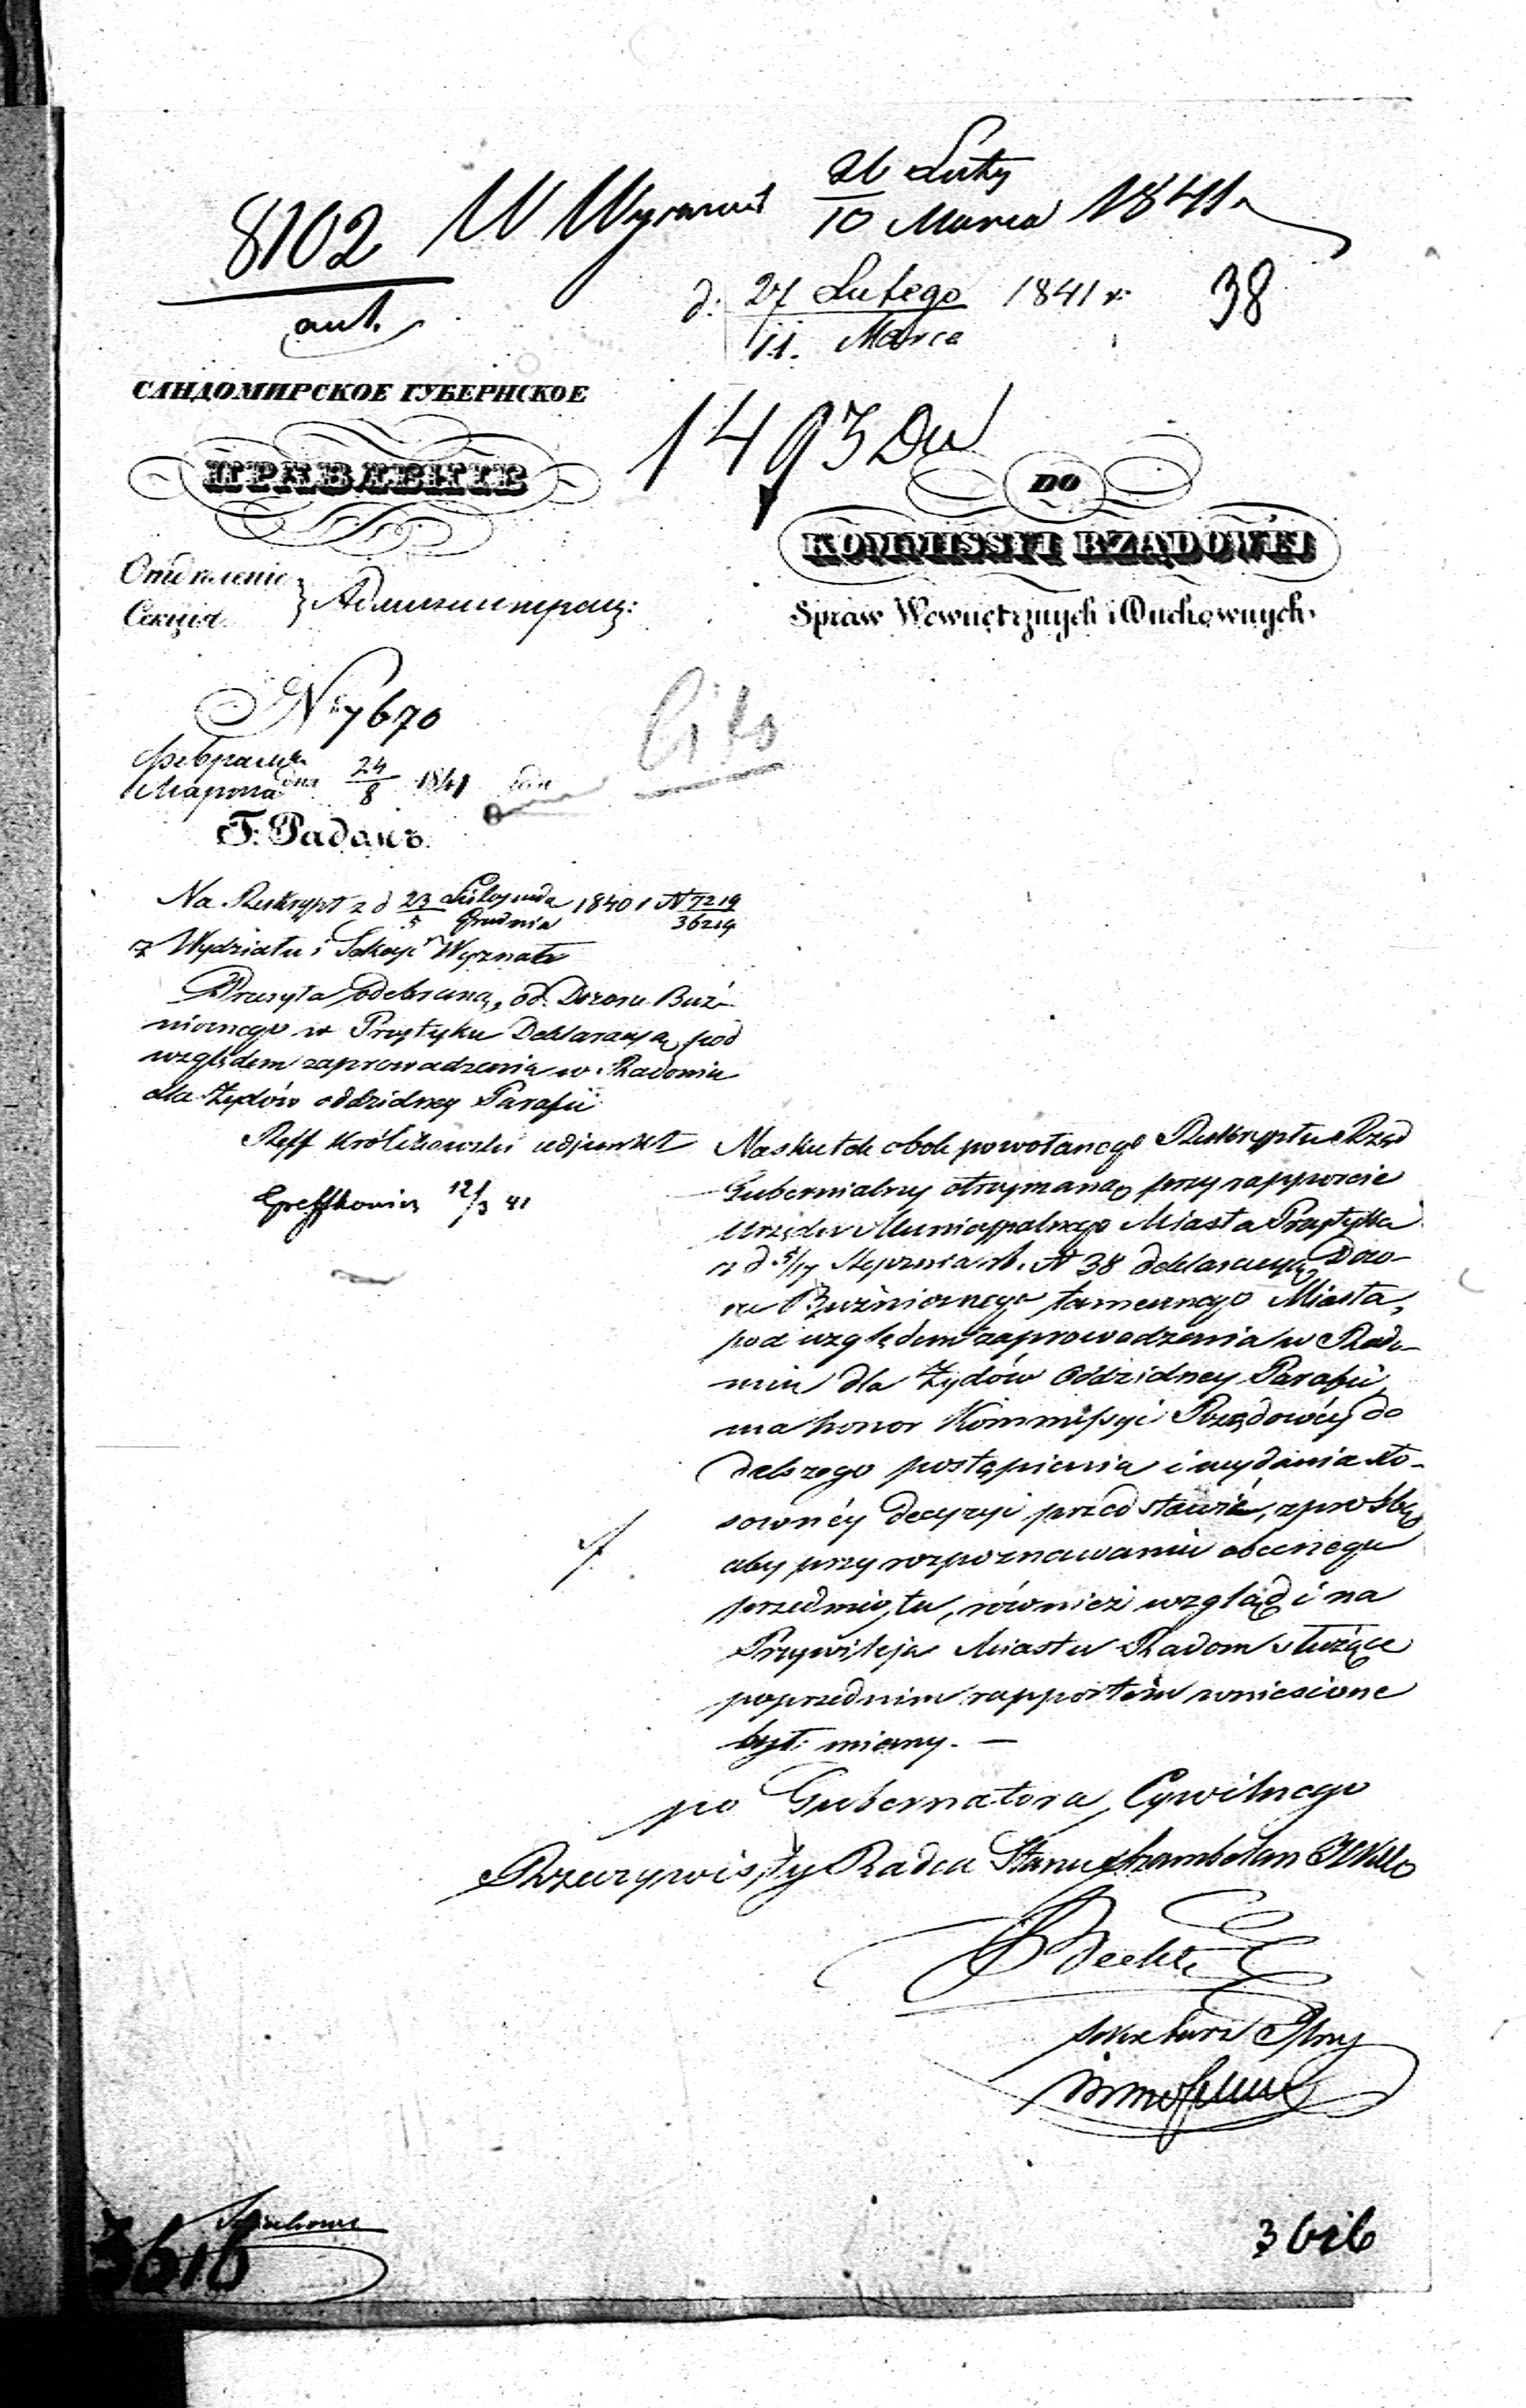 8102
ant.
W Wyznań 26 Luty
10 Marca 1841
d. 27 Lutego 1841 r.
11. Marca
38
САНДОМИРСКОЕ ГУБЕРНСКОЕ
ПРАВЛЕНІЕ
1493
DO
KOMMISSYI RZĄDOWÉJ
Spraw Wewnętrznych i Duchownych.
Отдѣленіе
Секція
Администрац:
№ 7670
Cito
Февраля
Марта дня 24/8 1841 года
Г. Радомъ.
Na Reskrypt z d 23 Listopada 1840 r N 7219
5 Grudnia 36219
z Wydziału i Sekcyi Wyznań
Przesyła odebraną, od Dozoru Buź-
nicznego w Przytyku Deklaracyą pod
względem zaprowadzenia w Radomiu
dla Żydów oddzidney Parafii
Reff Królikowski adjunkt
12/3 41
Naskutek obok powołanego Reskryptu Rząd
Gubernialny otrzymaną przy rapporcie
Urzędu Municypalnego Miasta Przytyka
z d 5/17 Stycznia rb. N 38 deklaracyą Dozo-
ru Buźnicznego tamecznego Miasta,
pod względem zaprowadzenia w Rado-
miu dla Żydów Oddzidney Parafii,
ma honor Kommissyi Rządowéy do
dalszego postąpienia i wydania sto-
sownéy decyzyi przedstawić, z prośbą
aby przy rozpoznawaniu obecnego
przedmiotu, również wzgląd i na
Przywileja Miastu Radom służące
poprzednim rapportem wniesione
był miany. —
po Gubernatora Cywilnego
Rzeczywisty Radca Stanu Szambelan
3616
3616